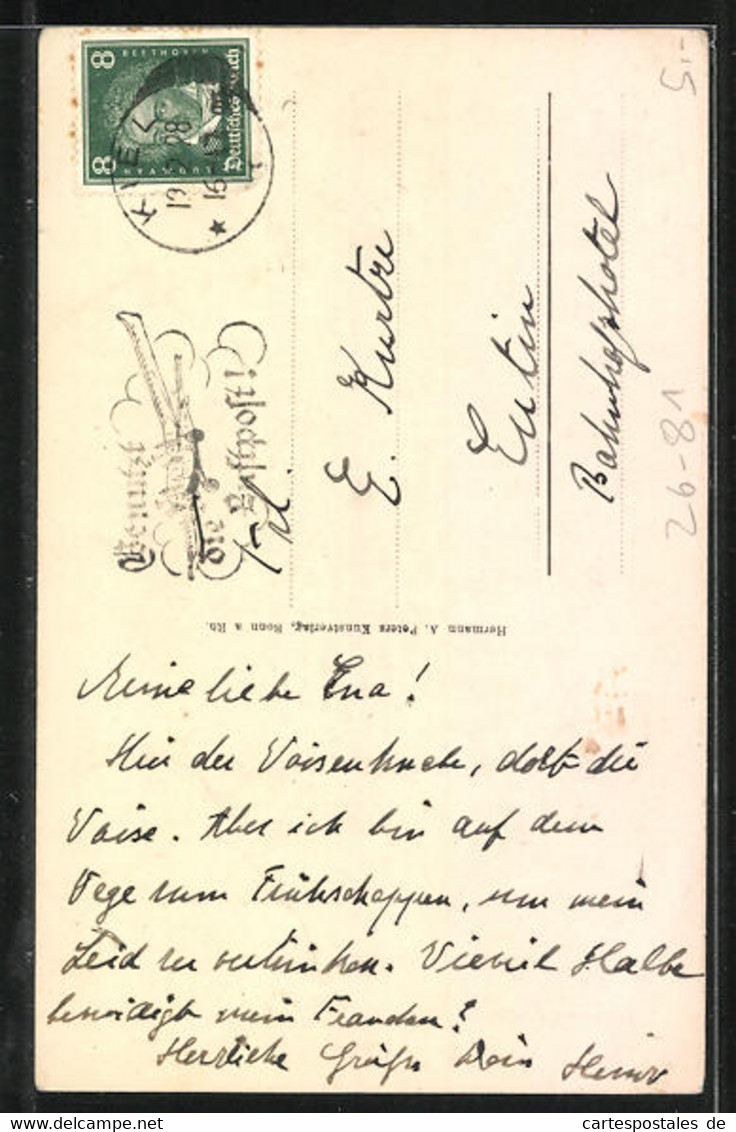 8 BEETHOVEN 8
LUDWIG VAN
Deutsches Reich
KIEL
19.2.28
16-17
Benutzt
die Luftpost!
Frl.
E. Kurtre
Eutin
Bahnhofshotel
5,-
26-81
Hermann A. Peters Kunstverlag, Bonn a Rh.
Meine liebe Ena!
Hier der Waisenknabe, dort die
Waise. Aber ich bin auf dem
Wege zum Frühschoppen, um mein
Leid zu vertrinken. Wieviel Halbe
mein
Herzliche Grüße Dein Heinz
cartespostales de